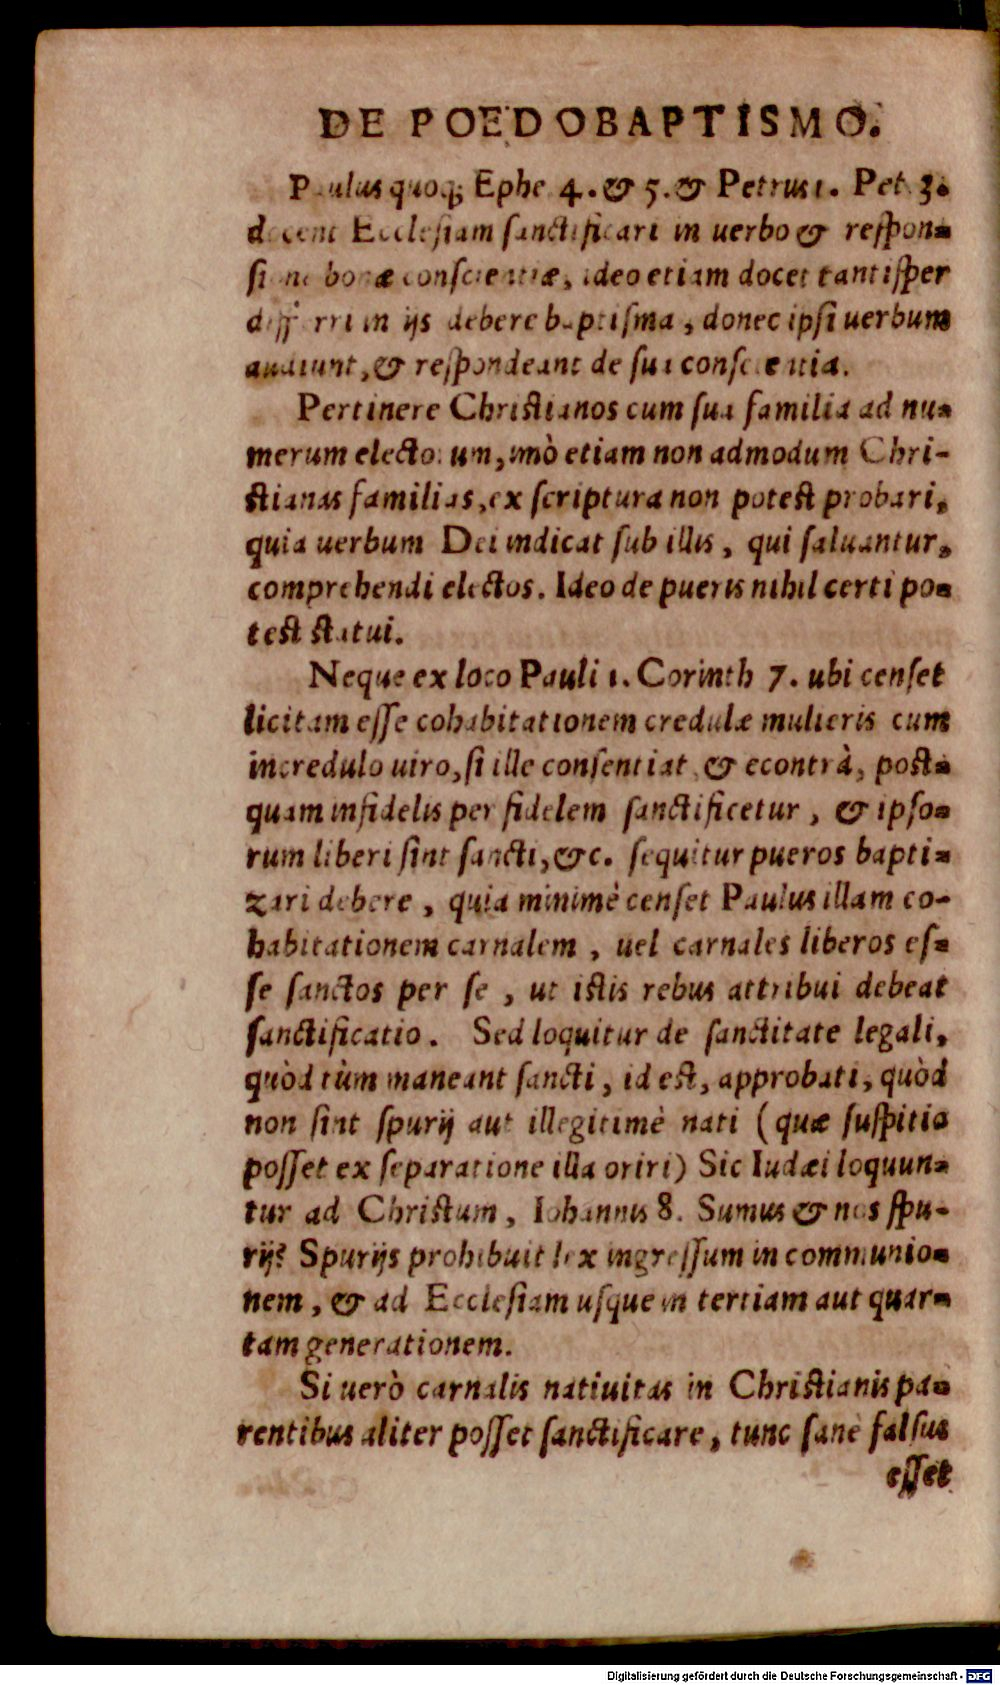 DE POEDOBAPTISMO.
Paulus quoq; Ephe 4. & 5. & Petrus 1. Pet. 3.
docent Ecclesiam sanctificari in uerbo & respon-
sione bonæ conscientiæ, ideo etiam docet tantisper
differri in ijs debere baptisma, donec ipsi uerbum
audiunt, & respondeant de sua conscientia.
Pertinere Christianos cum sua familia ad nu-
merum electorum, imò etiam non admodum Chri-
stianas familias, ex scriptura non potest probari,
quia uerbum Dei indicat sub illis, qui saluantur,
comprehendi electos. Ideo de pueris nihil certi po-
test statui.
Neque ex loco Pauli 1. Corinth 7. ubi censet
licitam esse cohabitationem credulæ mulieris cum
incredulo uiro, si ille consentiat, & econtrà, post-
quam infidelis per fidelem sanctificetur, & ipso-
rum liberi sint sancti, &c. sequitur pueros bapti-
zari debere, quia minimè censet Paulus illam co-
habitationem carnalem, uel carnales liberos es-
se sanctos per se, ut istis rebus attribui debeat
sanctificatio. Sed loquitur de sanctitate legali,
quòd tùm maneant sancti, id est, approbati, quòd
non sint spurij aut illegitimè nati (quæ suspitio
posset ex separatione illa oriri) Sic Iudæi loquun-
tur ad Christum, Iohannis 8. Sumus & nos spu-
rij? Spurijs prohibuit lex ingressum in communio-
nem, & ad Ecclesiam usque in tertiam aut quar-
tam generationem.
Si uerò carnalis natiuitas in Christianis pa-
rentibus aliter posset sanctificare, tunc sanè falsus
esset
Digitalisierung gefördert durch die Deutsche Forschungsgemeinschaft - DFG